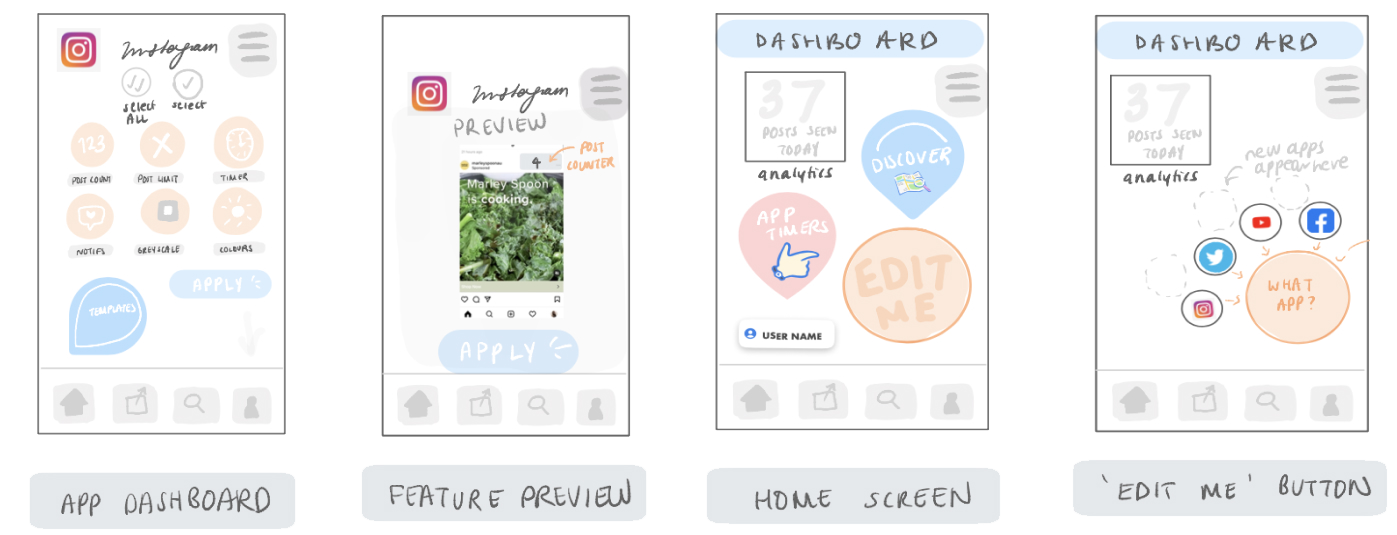 Instagram
select
ALL
select
123
POST COUNT
POST LIMIT
TIMER
NOTIFS
GREYSCALE
COLOURS
TEMPLATES
APPLY
APP DASHBOARD
Instagram
PREVIEW
POST
COUNTER
marleyspoonau
Sponsored
4
Marley Spoon
is cooking.
Shop Now
APPLY
FEATURE PREVIEW
DASHBOARD
37
POSTS SEEN
TODAY
analytics
DISCOVER
APP
TIMERS
EDIT
ME
USER NAME
HOME SCREEN
DASHBOARD
37
POSTS SEEN
TODAY
analytics
new apps
appear here
WHAT
APP?
'EDIT ME' BUTTON